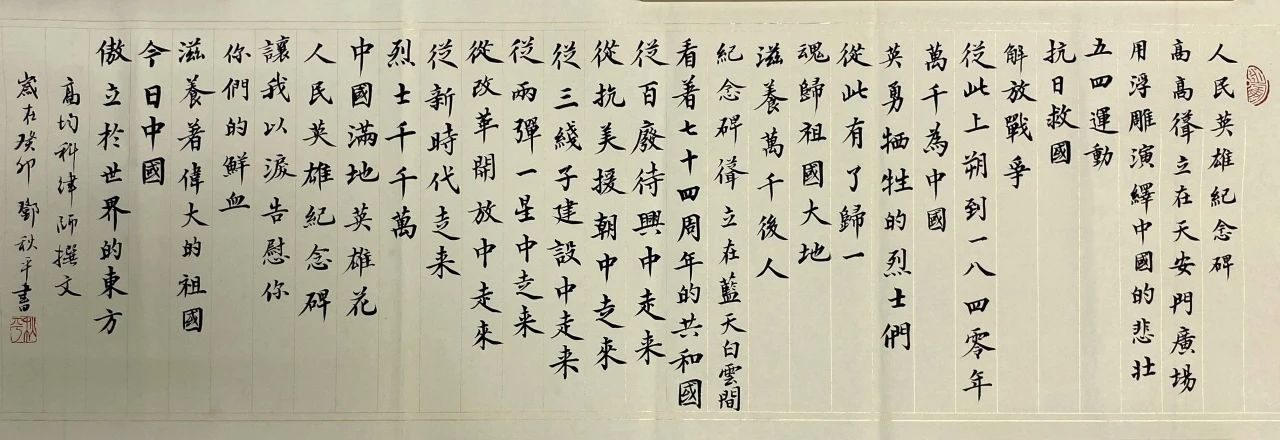 人民英雄紀念碑
高高聳立在天安門廣場
用浮雕演繹中國的悲壯
五四運動
抗日救國
解放戰爭
從此上朔到一八四零年
萬千為中國
英勇牺牲的烈士們
從此有了歸一
魂歸祖國大地
滋養萬千後人
紀念碑聳立在藍天白雲間
看著七十四周年的共和國
從百廢待興中走来
從抗美援朝中走來
從三綫子建設中走来
從兩彈一星中走来
從改革開放中走來
從新時代走来
烈士千千萬
中國滿地英雄花
人民英雄紀念碑
讓我以淚告慰你
你們的鮮血
滋養著偉大的祖國
今日中國
傲立於世界的東方
高均科律師撰文
嵗在癸卯 鄧秋平書